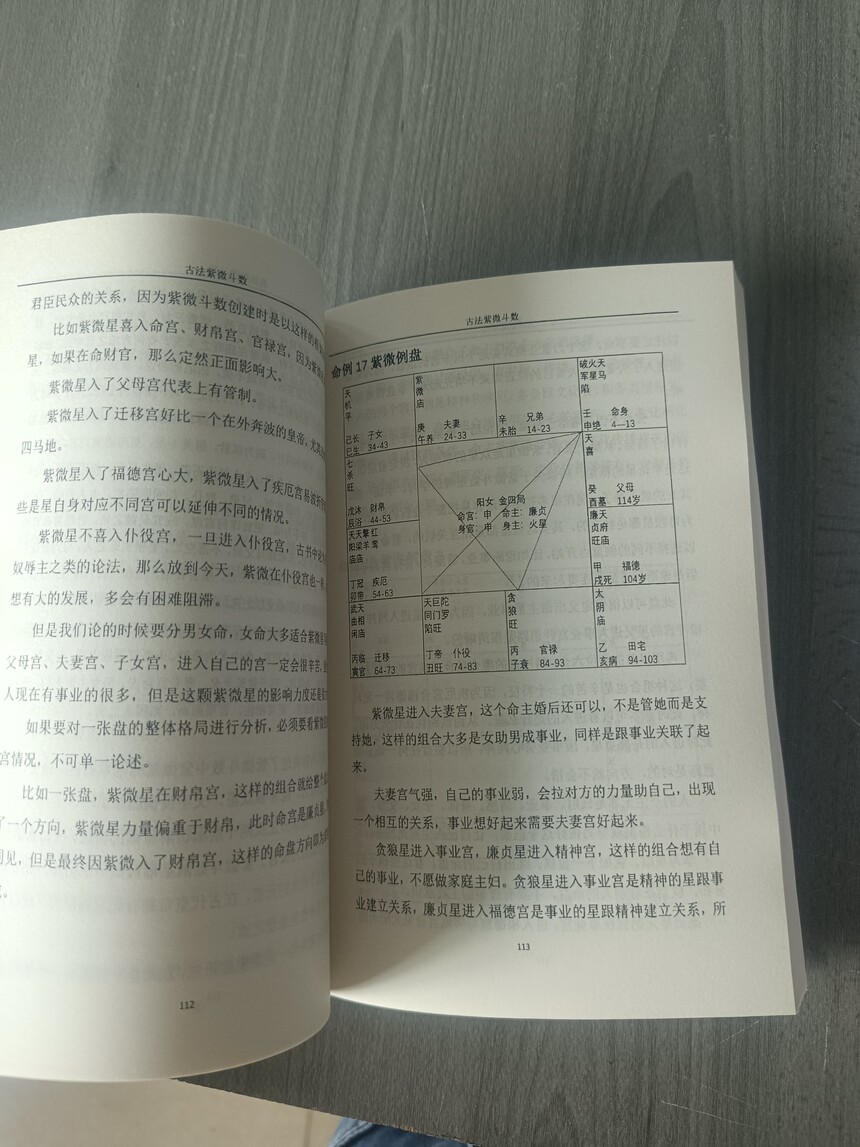 古法紫微斗数
君臣民众的关系，因为紫微斗数创建时是以这样的
比如紫微星喜入命宫、财帛宫、官禄宫，因为紫
星，如果在命财官，那么定然正面影响大。
紫微星入了父母宫代表上有管制。
紫微星入了迁移宫好比一个在外奔波的皇帝，尤其
四马地。
紫微星入了福德宫心大，紫微星入了疾厄宫易波折
些是星自身对应不同宫可以延伸不同的情况。
紫微星不喜入仆役宫，一旦进入仆役宫，古书中
奴辱主之类的论法，那么放到今天，紫微在仆役宫也
想有大的发展，多会有困难阻滞。
但是我们论的时候要分男女命，女命大多适合紫微星
父母宫、夫妻宫、子女宫，进入自己的宫一定会很辛苦，
人现在有事业的很多，但是这颗紫微星的影响力度还是
如果要对一张盘的整体格局进行分析，必须要看紫微
宫情况，不可单一论述。
比如一张盘，紫微星在财帛宫，这样的组合就给整
了一个方向，紫微星力量偏重于财帛，此时命宫是廉贞
同见，但是最终因紫微入了财帛宫，这样的命盘方向即为
112
古法紫微斗数
命例 17 紫微例盘
天机平
己长 子女
巳生 34-43
紫微庙
庚 夫妻
午养 24-33
辛 兄弟
未胎 14-23
破火天
军星马
陷
壬 命身
申绝 4—13
七杀旺
戊沐 财帛
辰浴 44-53
阳女 金四局
命宫：申 命主：廉贞
身宫：申 身主：火星
天喜
癸 父母
酉墓 114岁
天天擎红
阳梁羊鸾
庙庙
丁冠 疾厄
卯带 54-63
廉天
贞府
旺庙
甲 福德
戌死 104岁
武天
曲相
闲庙
丙临 迁移
寅官 64-73
天巨陀
同门罗
陷旺
丁帝 仆役
丑旺 74-83
贪狼旺
丙 官禄
子衰 84-93
太阴庙
乙 田宅
亥病 94-103
紫微星进入夫妻宫，这个命主婚后还可以，不是管她而是支
持她，这样的组合大多是女助男成事业，同样是跟事业关联了起
来。
夫妻宫气强，自己的事业弱，会拉对方的力量助自己，出现
一个相互的关系，事业想好起来需要夫妻宫好起来。
贪狼星进入事业宫，廉贞星进入精神宫，这样的组合想有自
己的事业，不愿做家庭主妇。贪狼星进入事业宫是精神的星跟事
业建立关系，廉贞星进入福德宫是事业的星跟精神建立关系，所
113